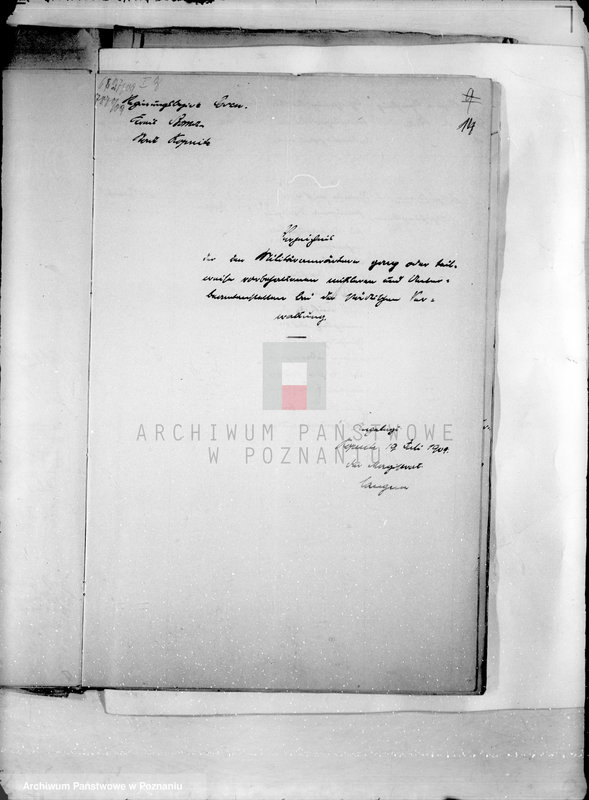 Regierungsbezirk Posen.
Kreis Bomst
Stadt Kopnitz
14
Verzeichnis
der den Militäranwärtern ganz oder teil-
weise vorbehaltenen mittleren und Unter-
beamtenstellen bei der städtischen Ver-
waltung
ARCHIWUM PAŃSTWOWE
W POZNANIU
Kopnitz 19 Juli 1909.
Der Magistrat
Archiwum Państwowe w Poznaniu